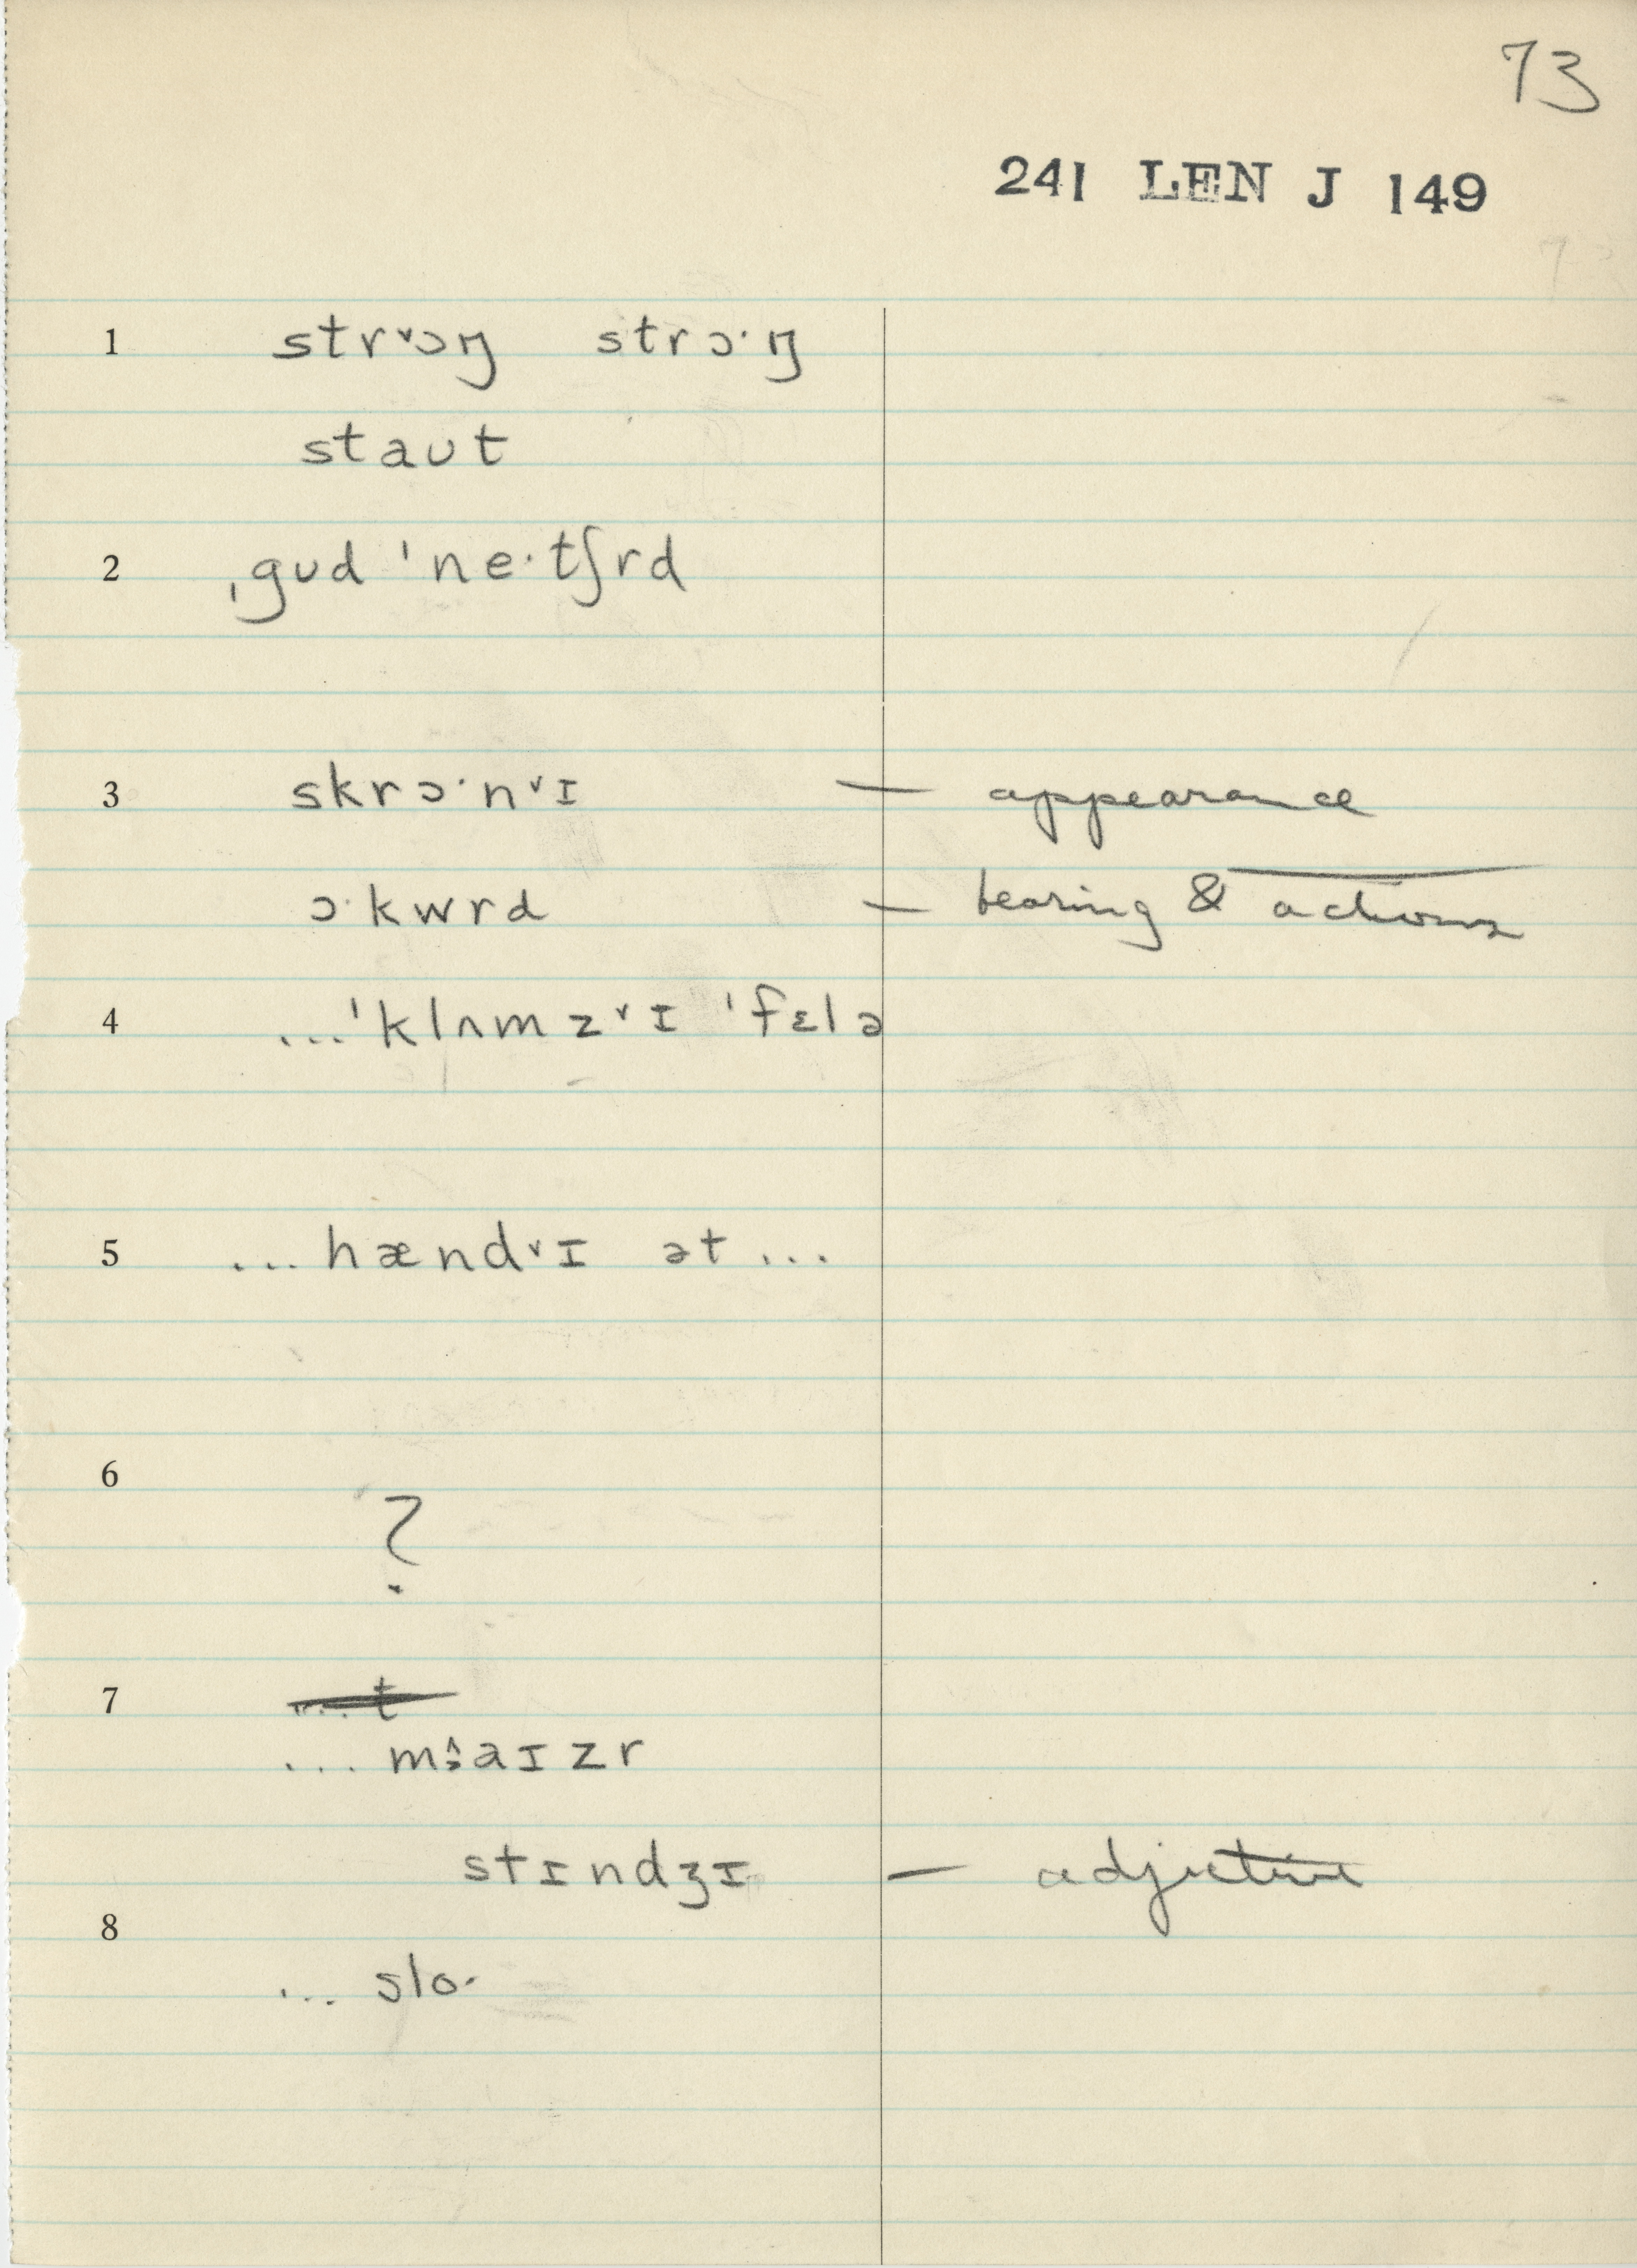 73
241 LEN J 149
1 strᵛɔŋ strɔ·ŋ
staʊt
2 ˌgʊd ˈne·tʃrd
3 skrɔ·nᵛɪ — appearance
ɔ·kwrd — bearing & actions
4 ...ˈklʌmzᵛɪ ˈfɛlə
5 ...hændᵛɪ ət ...
6
?
7 ... t
... maɪzr
stɪndʒɪ — adjective
8
... slo·